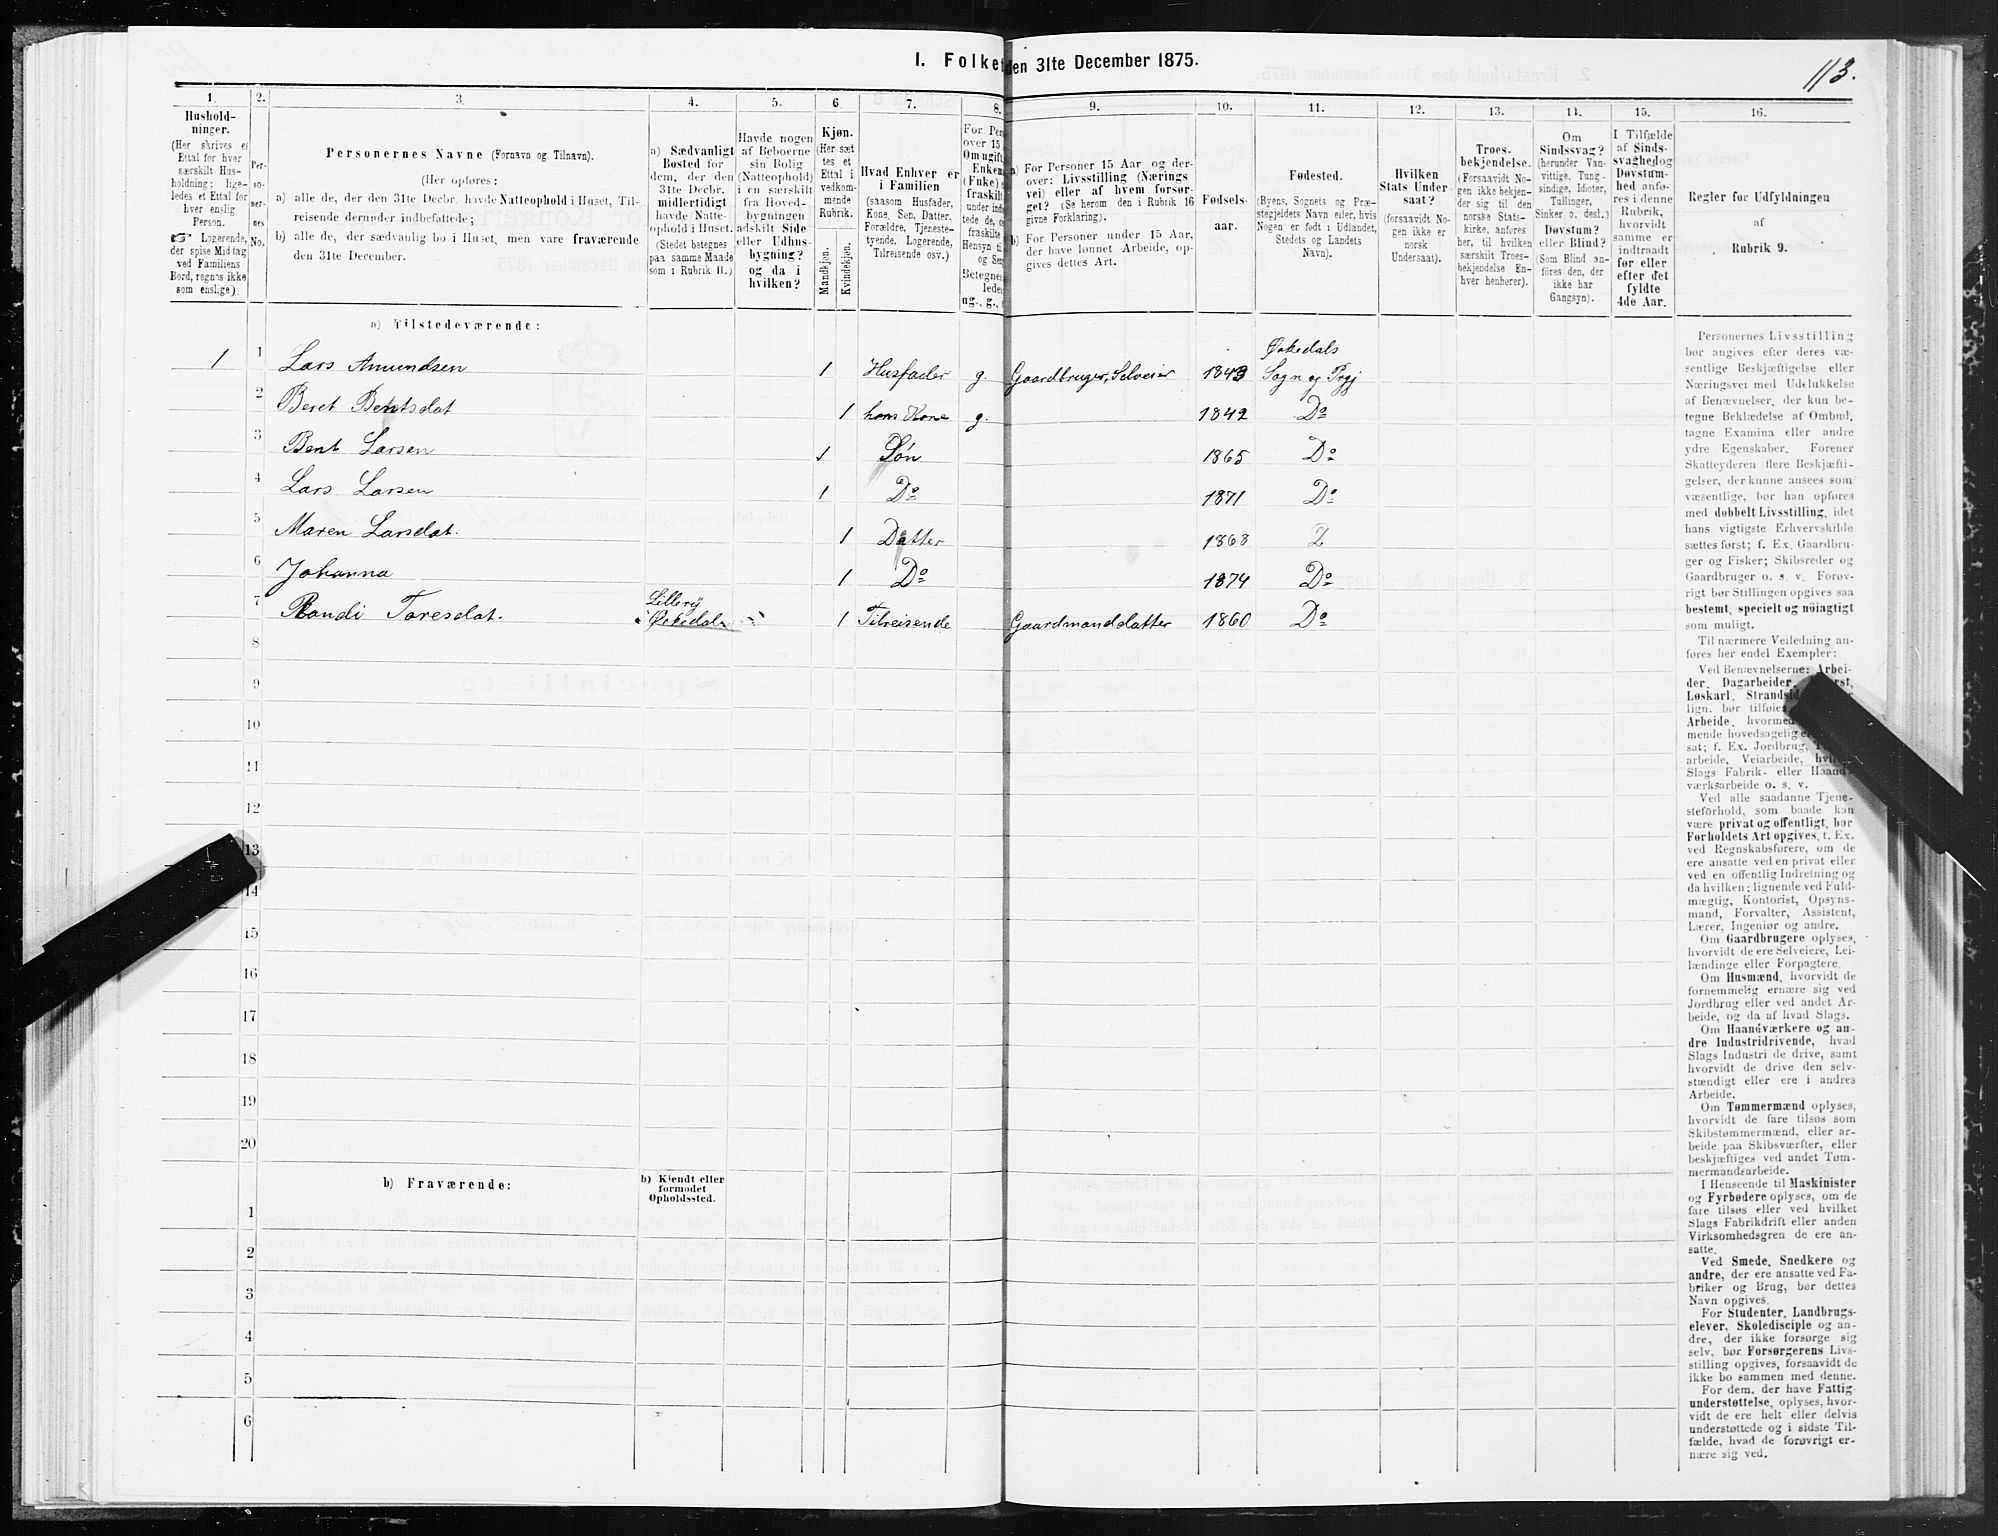 I. Folket
den 31te December 1875.
113.
1.
2.
3.
4.
5.
6.
7.
8.
9.
10.
11.
12.
13.
14.
15.
16.
Hushold-
ninger.
(Her skrives et
Ettal for hver
særskilt Hus-
holdning; lige-
ledes et Ettal for
hver enslig
Person.
☞ Logerende,
der spise Middag
ved Familiens
Bord, regnes ikke
som enslige).
Per-
so-
ner-
nes
No.
Personernes Navne (Fornavn og Tilnavn).
(Her opføres:
a) alle de, der den 31te Decbr. havde Natteophold i Huset, Til-
reisende derunder indbefattede;
b) alle de, der sædvanlig bo i Huset, men vare fraværende
den 31te December.
a) Sædvanligt
Bosted for
dem, der den
31te Decbr.
midlertidigt
havde Natte-
ophold i Huset.
(Stedet betegnes
paa samme Maade
som i Rubrik II.)
Havde nogen
af Beboerne
sin Bolig
(Natteophold)
i en særskilt
fra Hoved-
bygningen
adskilt Side
eller Udhus-
bygning?
og da i
hvilken?
Kjøn.
(Her sæt-
tes et
Ettal i
vedkom-
mende
Rubrik.
Mandkjøn.
Kvindekjøn.
Hvad Enhver er
i Familien
(saasom Husfader,
Kone, Søn, Datter,
Forældre, Tjeneste-
tyende, Logerende,
Tilreisende osv.)
For Per
over 15
Om ugift,
Enken
(Enke)
fraskilt
under ind
tede de,
fraskilte
Hensyn ti
og Se
Betegnes
lede
ug., g.,
a) For Personer 15 Aar og der-
over: Livsstilling (Nærings
vei) eller af hvem forsør-
get? (Se herom den i Rubrik 16
givne Forklaring).
b) For Personer under 15 Aar,
der have lønnet Arbeide, op-
gives dettes Art.
Fødsels-
aar.
Fødested.
(Byens, Sognets og Præ-
stegjeldets Navn eller, hvis
Nogen er født i Udlandet,
Stedets og Landets
Navn).
Hvilken
Stats Under-
saat?
(forsaavidt No-
gen ikke er
norsk
Undersaat).
Troes-
bekjendelse.
(Forsaavidt No-
gen ikke bekjen-
der sig til den
norske Stats-
kirke, anføres
her, til hvilken
særskilt Troes-
bekjendelse En-
hver henhører).
Om
Sindssvag?
(herunder Van-
vittige, Tung-
sindige, Idioter,
Tullinger,
Sinker o. desl.)
Døvstum?
eller Blind?
(Som Blind an-
føres den, der
ikke har
Gangsyn).
I Tilfælde
af Sinds-
svaghed og
Døvstum-
hed anfø-
res i denne
Rubrik,
hvorvidt
samme er
indtraadt
før eller
efter det
fyldte
4de Aar.
Regler for Udfyldningen
af
Rubrik 9.
a) Tilstedeværende:
1 1 Lars Amundsen 1 Husfader g. Gaardbruger, Selveier 1843 Orkedals Sogn og Prgj
2 Beret Bentsdat 1 hans Kone g. 1842 Do
3 Bent Larsen 1 Søn 1865 Do
4 Lars Larsen 1 Do 1871 Do
5 Maren Larsdat. 1 Datter 1868
6 Johanna 1 Do 1874 Do
7 Randi Toresdat. Orkedal 1 Tilreisende Gaardmanddatter 1860 Do
8
9
10
11
12
13
14
15
16
17
18
19
20
b) Fraværende:
b) Kjendt eller
formodet
Opholdssted.
1
2
3
4
5
6
Personernes Livsstilling
bør angives efter deres væ-
sentlige Beskjæftigelse eller
Næringsvei med Udelukkelse
af Benævnelser, der kun be-
tegne Beklædelse af Ombud,
tagne Examina eller andre
ydre Egenskaber. Forener
Skatteyderen flere Beskjæfti-
gelser, der kunne ansees som
væsentlige, bør han opføres
med dobbelt Livsstilling, idet
hans vigtigste Erhvervskilde
sættes først; f. Ex. Gaardbru-
ger og Fisker; Skibsreder og
Gaardbruger o. s. v. Forøv-
rigt bør Stillingen opgives saa
bestemt, specielt og nøiagtigt
som muligt.
Til nærmere Veiledning an-
føres her endel Exempler:
Ved Benævnelserne: Arbei-
der, Dagarbeider,
Løskarl, Strandsid
lign. bør tilføies
Arbeide, hvormed
mende hovedsagelig er
sat; f. Ex. Jordbrug,
arbeide, Veiarbeide, hvil
Slags Fabrik- eller Haand-
værksarbeide o. s. v.
Ved alle saadanne Tjene-
steforhold, som baade kan
være privat og offentligt, bør
Forholdets Art opgives, t. Ex.
ved Regnskabsførere, om de
ere ansatte ved en privat eller
ved en offentlig Indretning og
da hvilken; lignende ved Fuld-
mægtig, Kontorist, Opsyns-
mand, Forvalter, Assistent,
Lærer, Ingeniør og andre.
Om Gaardbrugere oplyses,
hvorvidt de ere Selveiere, Lei-
lændinge eller Forpagtere.
Om Husmænd, hvorvidt de
fornemmelig ernære sig ved
Jordbrug eller ved andet Ar-
beide, og da af hvad Slags.
Om Haandværkere og an-
dre Industridrivende, hvad
Slags Industri de drive, samt
hvorvidt de drive den selv-
stændigt eller ere i andres
Arbeide.
Om Tømmermænd oplyses,
hvorvidt de fare tilsøs som
Skibstømmermænd, eller ar-
beide paa Skibsværfter, eller
beskjæftiges ved andet Tøm-
mermandsarbeide.
I Henseende til Maskinister
og Fyrbødere oplyses, om de
fare tilsøs eller ved hvilket
Slags Fabrikdrift eller anden
Virksomhedsgren de ere an-
satte.
Ved Smede, Snedkere og
andre, der ere ansatte ved Fa-
briker og Brug, bør dettes
Navn opgives.
For Studenter, Landbrugs-
elever, Skoledisciple og an-
dre, der ikke forsørge sig
selv, bør Forsørgerens Livs-
stilling opgives, forsaavidt de
ikke bo sammen med denne.
For dem, der have Fattig-
understøttelse, oplyses, hvor-
vidt de ere helt eller delvis
understøttede og i sidste Til-
fælde, hvad de forøvrigt er-
nære sig ved.